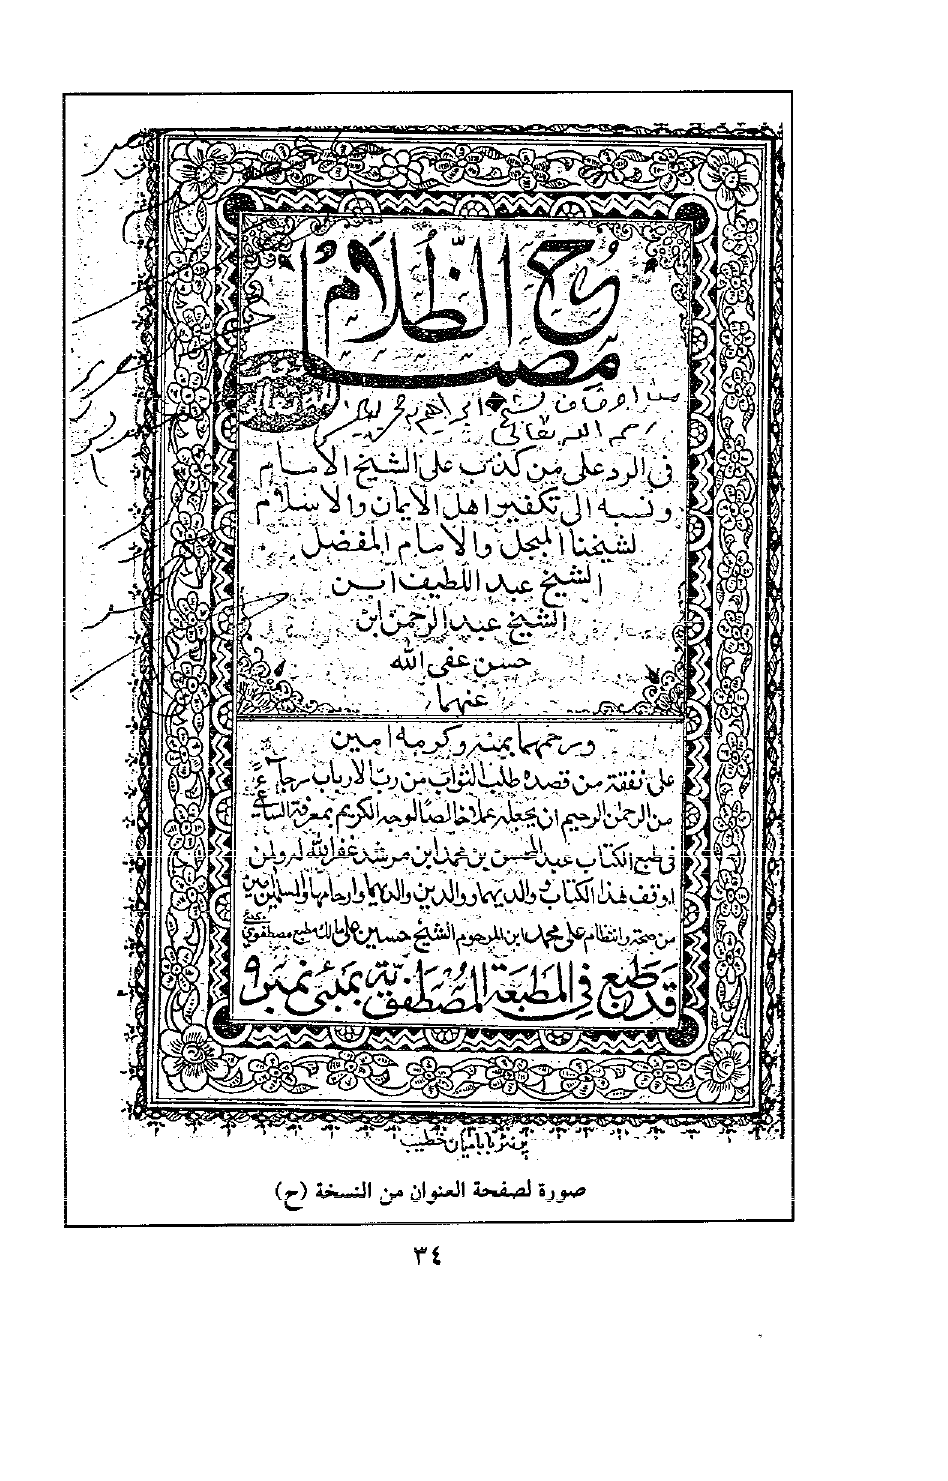 مصباح الظلام
من اوقاف الشيخ ابراهيم
رحمه الله تعالى
فى الرد على من كذب على الشيخ الامام
ونسبه الى تكفير اهل الايمان والاسلام
لشيخنا المبجل والامام المفضل
الشيخ عبد اللطيف ابن
الشيخ عبد الرحمن بن
حسن عفى الله
عنهما
ورحمهما بمنه وكرمه امين
على نفقة من قصده طلب الثواب من رب الارباب رجاء
من الرحمن الرحيم ان يجعله عملا خالصا لوجه الكريم بمعرفة الساعى
فى طبع الكتاب عبد المحسن بن محمد ابن مرشد غفر الله له ولمن
اوقف هذا الكتاب ووالديهما ووالدين والديهما وارحامهما والمسلمين امين
من صحة وانتظام على محمد ابن المرحوم الشيخ حسين على مالك مطبع مصطفوي
قد طبع في المطبعة المصطفوية بمبئ نمبر ٩
صورة لصفحة العنوان من النسخة (ح)
٣٤